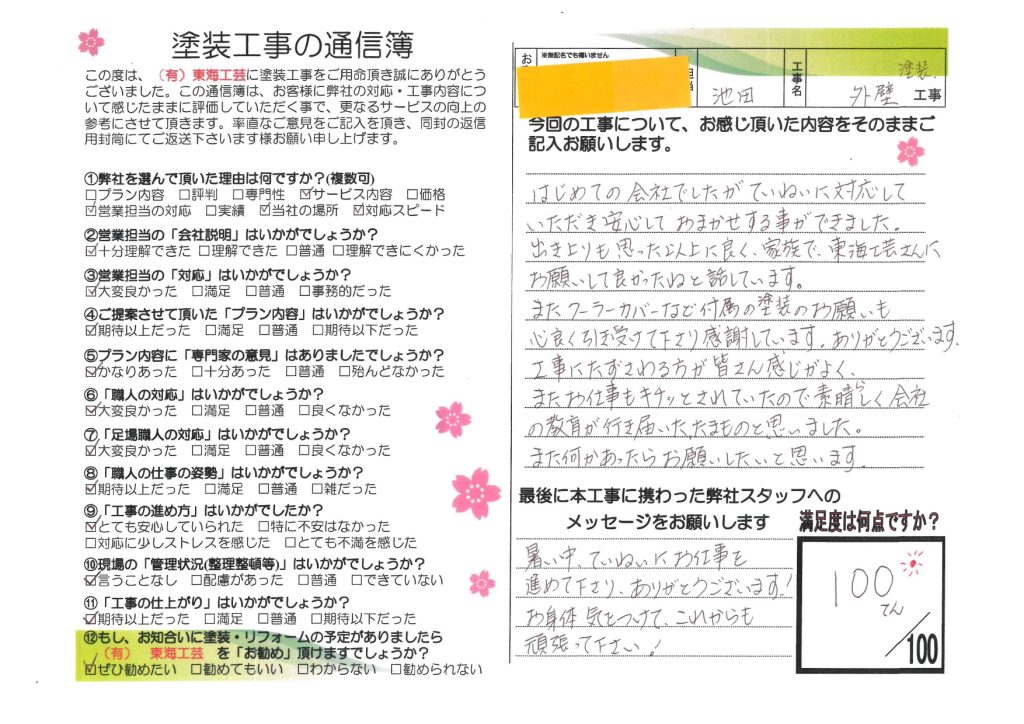 塗装工事の通信簿
この度は、(有)東海工芸に塗装工事をご用命頂き誠にありがとう
ございました。この通信簿は、お客様に弊社の対応・工事内容につ
いて感じたままに評価していただく事で、更なるサービスの向上の
参考にさせて頂きます。率直なご意見をご記入を頂き、同封の返信
用封筒にてご返送下さいます様お願い申し上げます。
①弊社を選んで頂いた理由は何ですか?(複数可)
□プラン内容 □評判 □専門性 ☑サービス内容 □価格
☑営業担当の対応 □実績 ☑当社の場所 ☑対応スピード
②営業担当の「会社説明」はいかがでしょうか?
☑十分理解できた □理解できた □普通 □理解できにくかった
③営業担当の「対応」はいかがでしょうか?
☑大変良かった □満足 □普通 □事務的だった
④ご提案させて頂いた「プラン内容」はいかがでしょうか?
☑期待以上だった □満足 □普通 □期待以下だった
⑤プラン内容に「専門家の意見」はありましたでしょうか?
☑かなりあった □十分あった □普通 □殆んどなかった
⑥「職人の対応」はいかがでしょうか?
☑大変良かった □満足 □普通 □良くなかった
⑦「足場職人の対応」はいかがでしょうか?
☑大変良かった □満足 □普通 □良くなかった
⑧「職人の仕事の姿勢」はいかがでしょうか?
☑期待以上だった □満足 □普通 □雑だった
⑨「工事の進め方」はいかがでしたか?
☑とても安心していられた □特に不安はなかった
□対応に少しストレスを感じた □とても不満を感じた
⑩現場の「管理状況(整理整頓等)」はいかがでしょうか?
☑言うことなし □配慮があった □普通 □できていない
⑪「工事の仕上がり」はいかがでしょうか?
☑期待以上だった □満足 □普通 □期待以下だった
⑫もし、お知合いに塗装・リフォームの予定がありましたら
(有) 東海工芸 を「お勧め」頂けますでしょうか?
☑ぜひ勧めたい □勧めてもいい □わからない □勧められない
お ※無記名でも構いません
担当 池田 工事名 外壁塗装 工事
今回の工事について、お感じ頂いた内容をそのままご
記入お願いします。
はじめての会社でしたがていねいに対応して
いただき安心しておまかせする事ができました。
出き上りも思った以上に良く、家族で、東海工芸さんに
お願いして良かったねと話しています。
またクーラーカバーなど付属の塗装のお願いも
心良く引き受けて下さり感謝しています。ありがとうございます。
工事にたずさわる方が皆さん感じがよく、
またお仕事もキチッとされていたので素晴らしく会社
の教育が行き届いた、たまものと思いました。
また何かあったらお願いしたいと思います。
最後に本工事に携わった弊社スタッフへの
メッセージをお願いします
暑い中、ていねいにお仕事を
進めて下さり、ありがとうございます!
お身体気をつけて、これからも
頑張って下さい!
満足度は何点ですか?
100てん/100